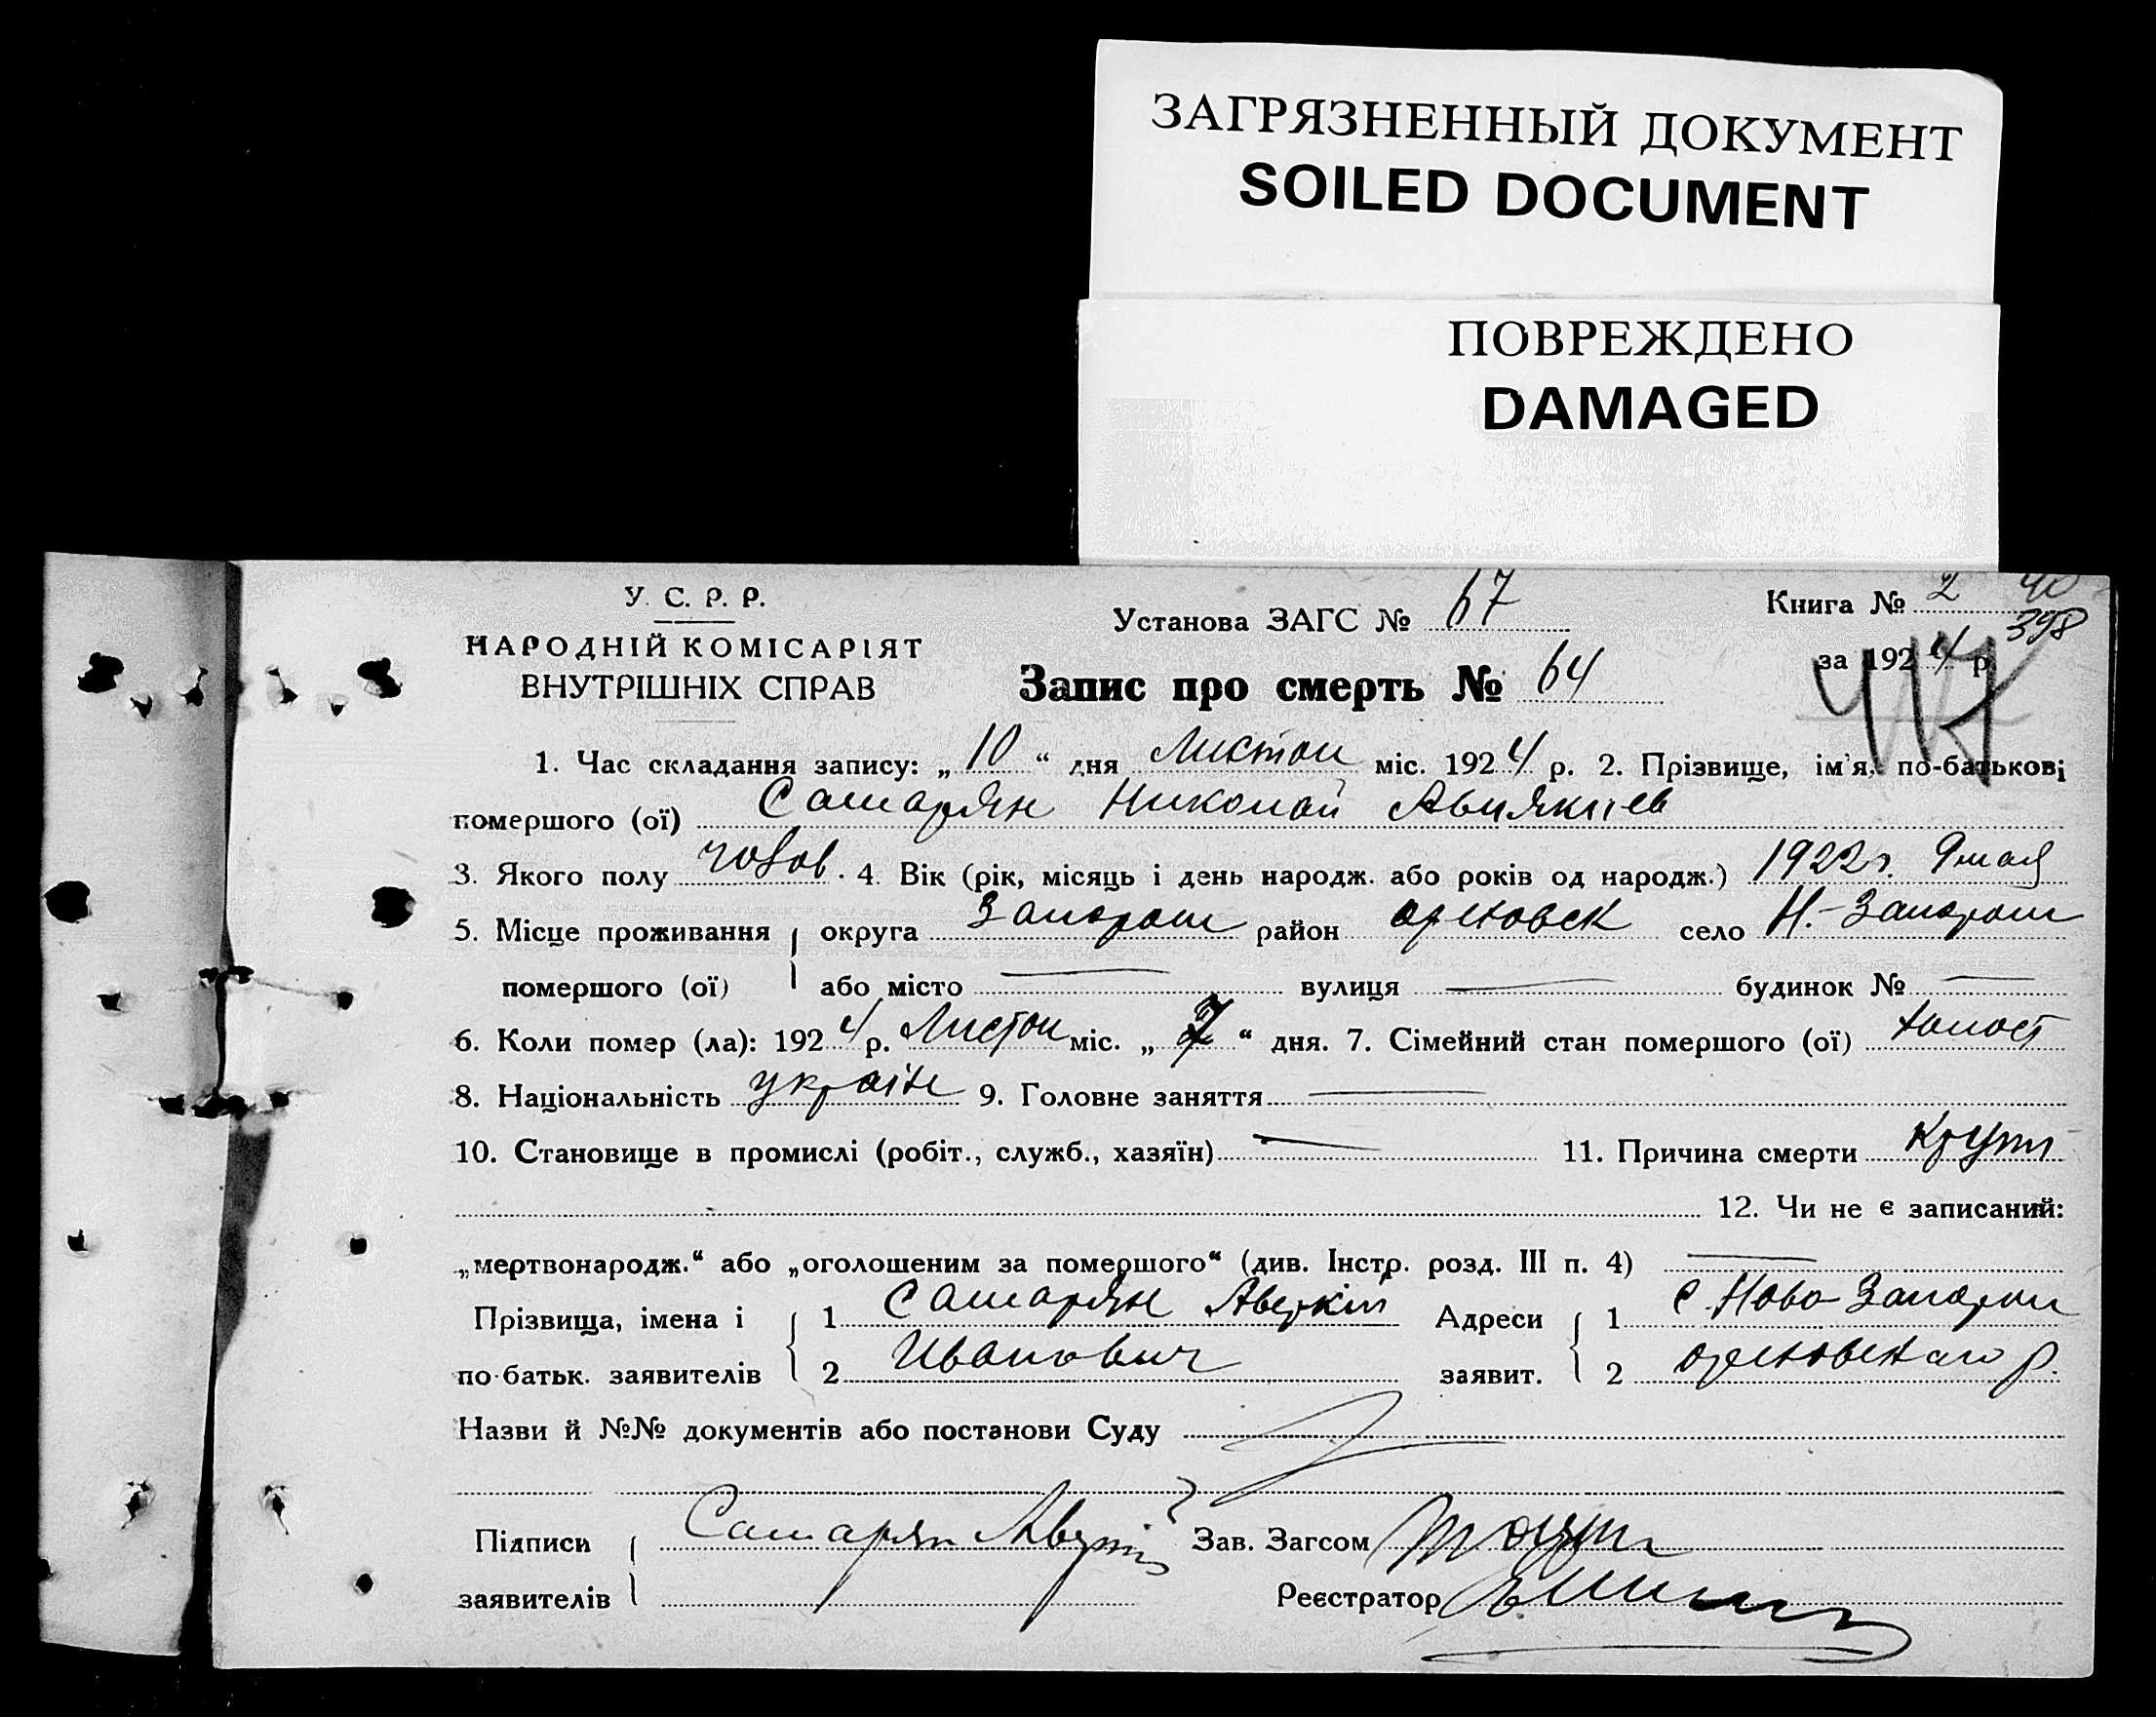 ЗАГРЯЗНЕННЫЙ ДОКУМЕНТ
SOILED DOCUMENT
ПОВРЕЖДЕНО
DAMAGED
У. С. Р. Р.
НАРОДНІЙ КОМІСАРІЯТ
ВНУТРІШНІХ СПРАВ
Установа ЗАГС № 67
Запис про смерть № 64
Книга № 2 40
398
за 1924 р.
417
1. Час складання запису: „10“ дня Листоп міс. 1924 р. 2. Прізвище, ім'я, по-батькові
помершого (ої) Самарян Николай
3. Якого полу чолов. 4. Вік (рік, місяць і день народж. або років од народж.) 1922г. 9 мая
5. Місце проживання округа Запорож район Ореховск село Н.-Запорож
помершого (ої) або місто — вулиця — будинок № —
6. Коли помер (ла): 1924 р. Листоп міс. „7“ дня. 7. Сімейний стан помершого (ої) холост
8. Національність україн 9. Головне заняття —
10. Становище в промислі (робіт., служб., хазяїн) — 11. Причина смерти Круп
12. Чи не є записаний:
„мертвонародж.“ або „оголошеним за помершого“ (див. Інстр. розд. III п. 4) —
Прізвища, імена і 1 Самарян Аверкий Адреси 1 с. Ново-Запорож
по-батьк. заявителів 2 Иванович заявит. 2 Ореховскаго р.
Назви й №№ документів або постанови Суду
Підписи Самарян Зав. Загсом
заявителів Реєстратор